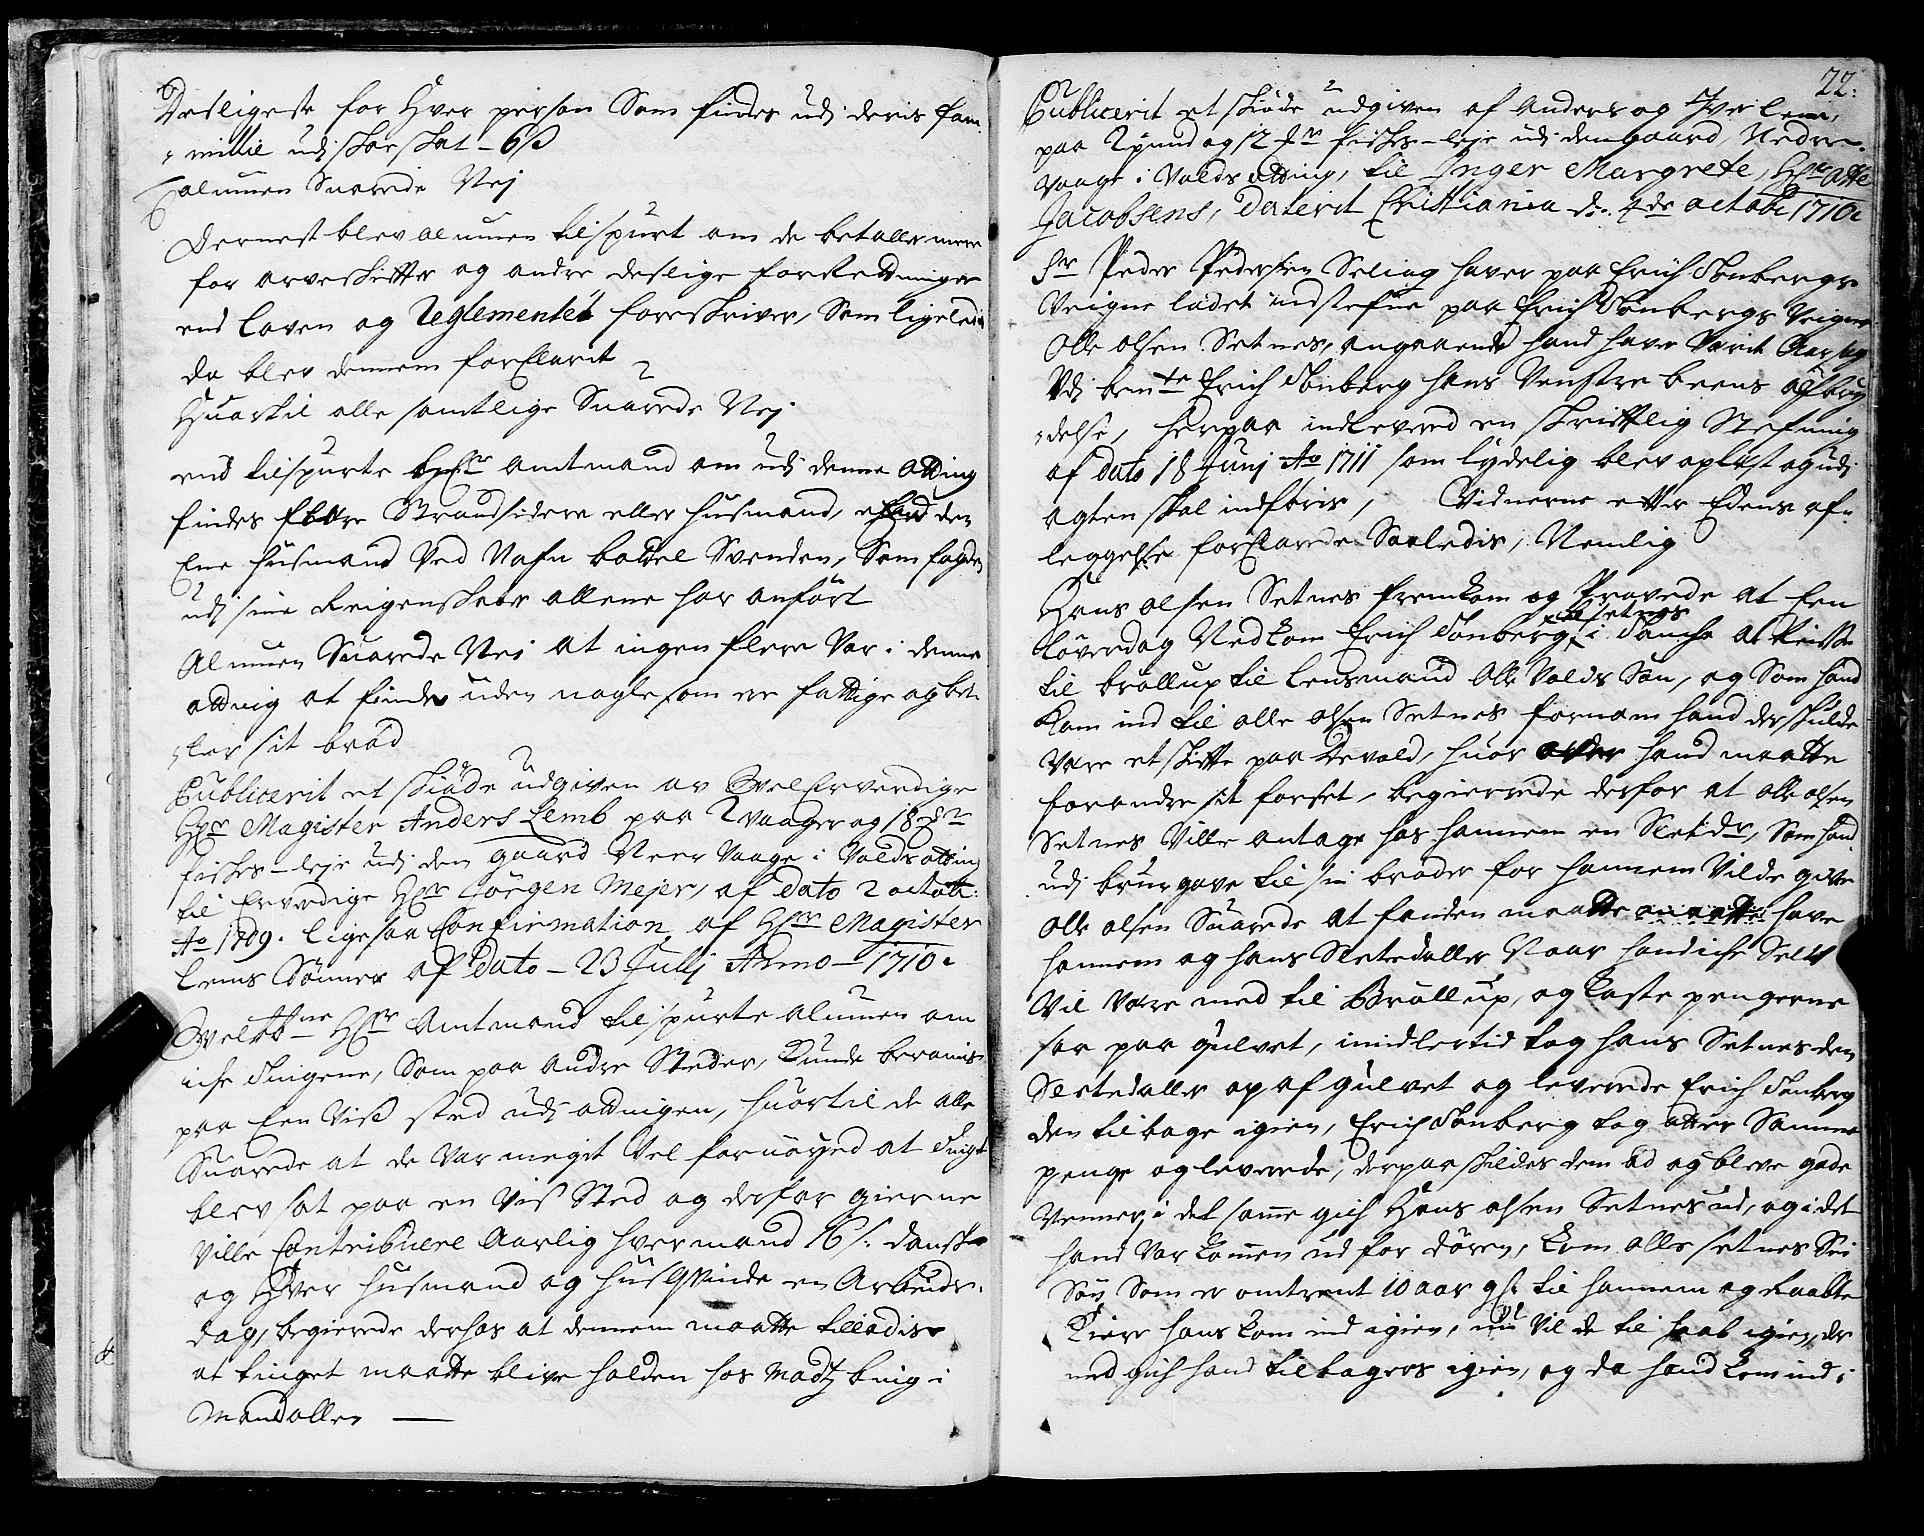 Desligeste for Hver person Som findes udj deris fam-
millie udj skoeskat - 6 ß
Almuen Suarede Nej
Dernest blev almuen tilspurt om de betaller mere
for arveskiffter og andre deslige forRettninger
end Loven og Reglementet foreskriver, Som ligeledis
da blev dennem forklarit
Huartil alle samtlige Suarede Nej
end tilspurte hr amtmand om udj denne otting
findes flere Strandsidere eller husmænd, end den
Ene husmand Ved Nafn baltzel Svenden, Som fogden
udj sine Reigenskaber allene har anført
Almuen Suarede Nei at ingen flere Var i denne
otting at finde uden nogle som ere fattige og bet-
ler sit brød
Publicerit et skiøde udgiven av WelErverdige
Hr Magister Anders Lemb paa 2 vaager og 18
fiskes-leje udj den gaard Neer Vaage i Volds otting
til Erverdige Hr Jørgen Mejer, af dato 2 octob:
Ao 1709. ligesaa Confirmation af Hr Magister
Lems Sønner af Dato - 23 Julj Anno - 1710.
Welb:ne Hr Amtmand tilspurte almuen om
iche Tingene, Som paa andre Steder, Kunde berammis
paa Een Viss sted udj ottingen, huortil de alle
Suarede at de Var meget Vel fornøyed at Tinget
blev sat paa en Vis Sted og derfor gierne
Ville Contribuere Aarlig hver mand 16 s. danske
og Hver husmand og husqvinde en Arbeids-
dag, begierede derhos at dennem maatte tilladis
at tinget maatte blive holden hos Madtz buig i
Mandallen
22.
Publicerit et skiøde udgiven af Anders og Iver Lem,
paa 2 pund og 12 fiskes-leje udj den gaard, Nedre-
vaage i Volds otting, til Inger Margrete, Hr Otte
Jacobsens, Daterit Christiania d. 4de octobr 1710.
Sr Peder Pedersen Seling haver paa Erich Tønbergs
Veigne ladet indstefne paa Erich Tønbergs Veigne
Olle olsen Setnes, angaaende hand haver Værit Aarsag
Udj bemte Erich Tønberg hans Venstre beens afbry-
delse, herpaa indleverd en skrifftlig Stefning
af dato 18 Junj Ao 1711 som lydelig blev oplæst og udj
agten skal indføris, Vidnerne effter Edens af-
leggelse forklarede Saaledis, Nemlig
Hans olsen Setnes fremkom og Provede at Een
til setnes
Løverdag Nedkom Erich Tønberg i Tanche at Reisse
til brøllup til Lensmand Olle Volds Søn, og Som hand
kom ind til olle olsen Setnes fornam hand der skulde
være et skiffte paa Devold, huor over hand maatte
forandre sit forset, begierede derfor at olle olsen
Setnes Ville antage hos hannem en Sletdr, Som hand
udj brurgave til sin broder for hannem Vilde give
Olle olsen Suarede at fanden maatte have
hannem og hans Sletedaller Naar hand iche Self
Vil Være med til Brøllup, og kaste pengerne
saa paa gulvet, imidlertid tog hans Setnes den
Sletedaller op af gulvet og leverede Erich Tønberg
den tilbage igien, Erich Tønberg tog atter Samme
penge og leverede, derpaa skildes dem ad og bleve gode
Venner, i det same gich Hans olsen Setnes ud, og i det
hand Var komen ud for døren, kom olle setnes Sin
Søn Som er omtrent 10 aar gl: til hannem og Raabte
Kiere hans kom ind igien, nu Vil de til haab igien, der
med gich hand tilbagers igien, og da hand kom ind i